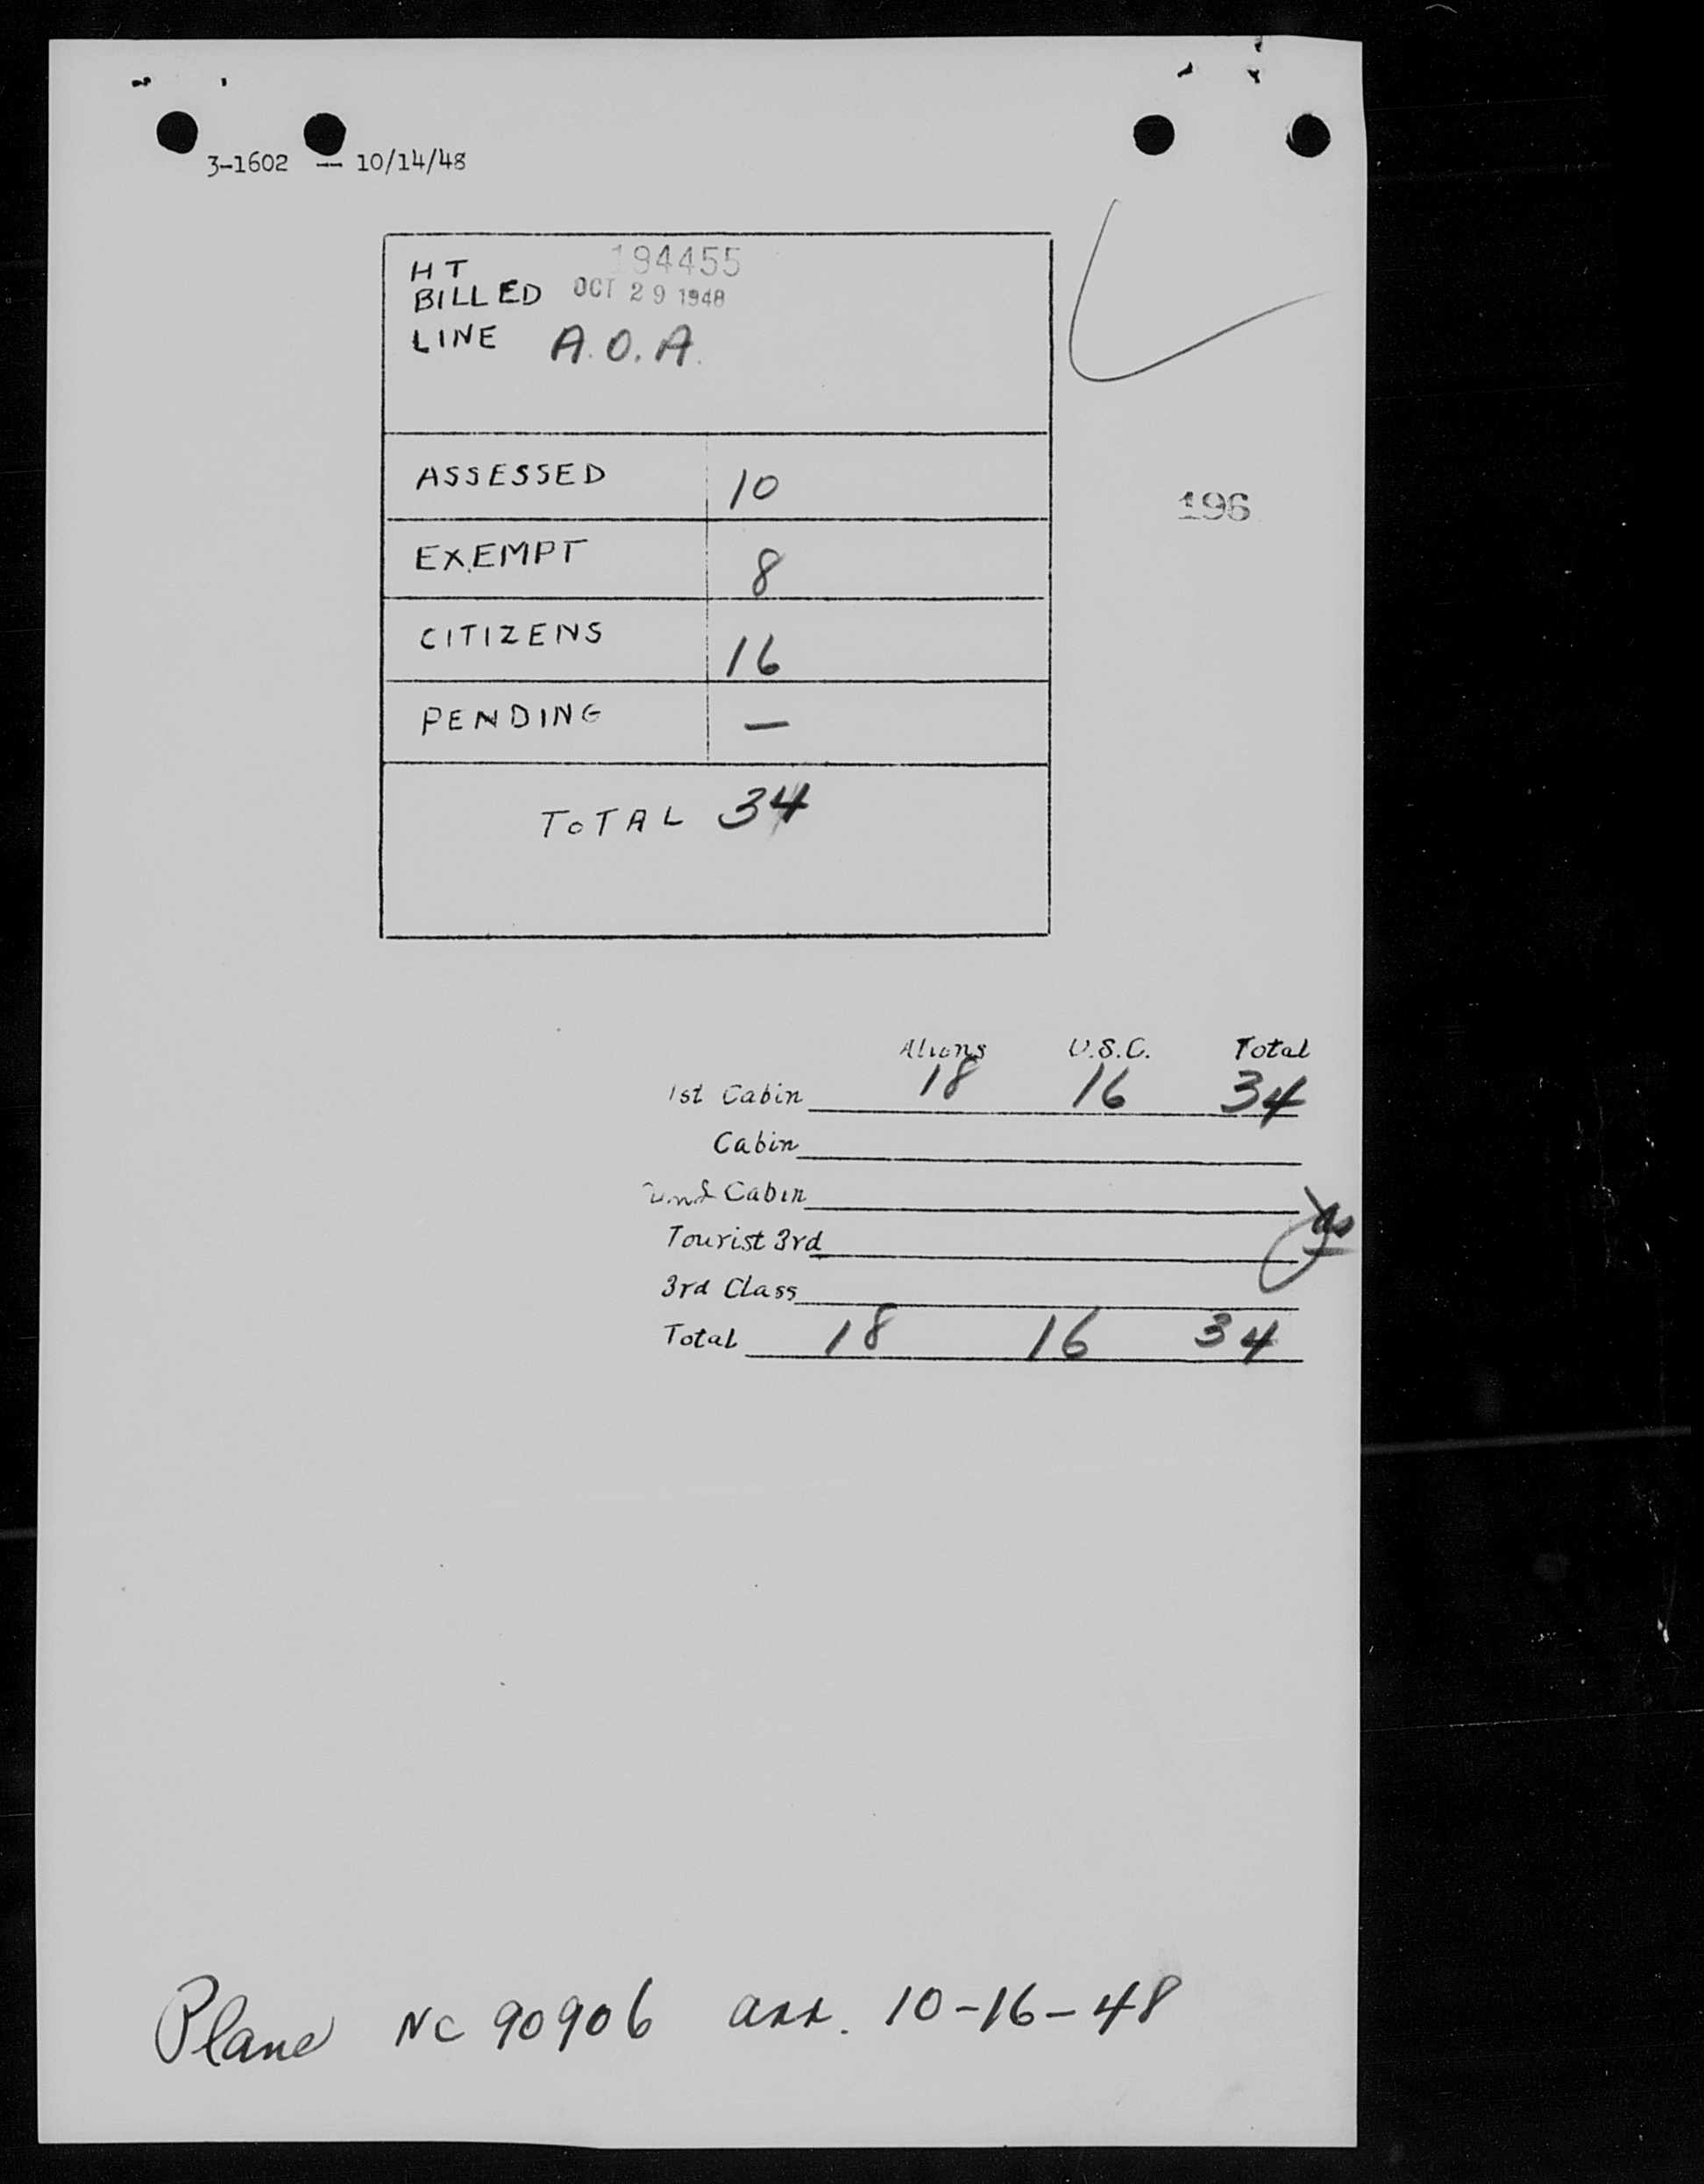 3-1602 -- 10/14/48
HT 194455
BILLED OCT 29 1948
LINE A.O.A.
ASSESSED 10
196
EXEMPT 8
CITIZENS 16
PENDING —
TOTAL 34
Aliens U.S.C. Total
1st Cabin 18 16 34
Cabin
2nd Cabin
Tourist 3rd
3rd Class
Total 18 16 34
Plane NC 90906 arr. 10-16-48